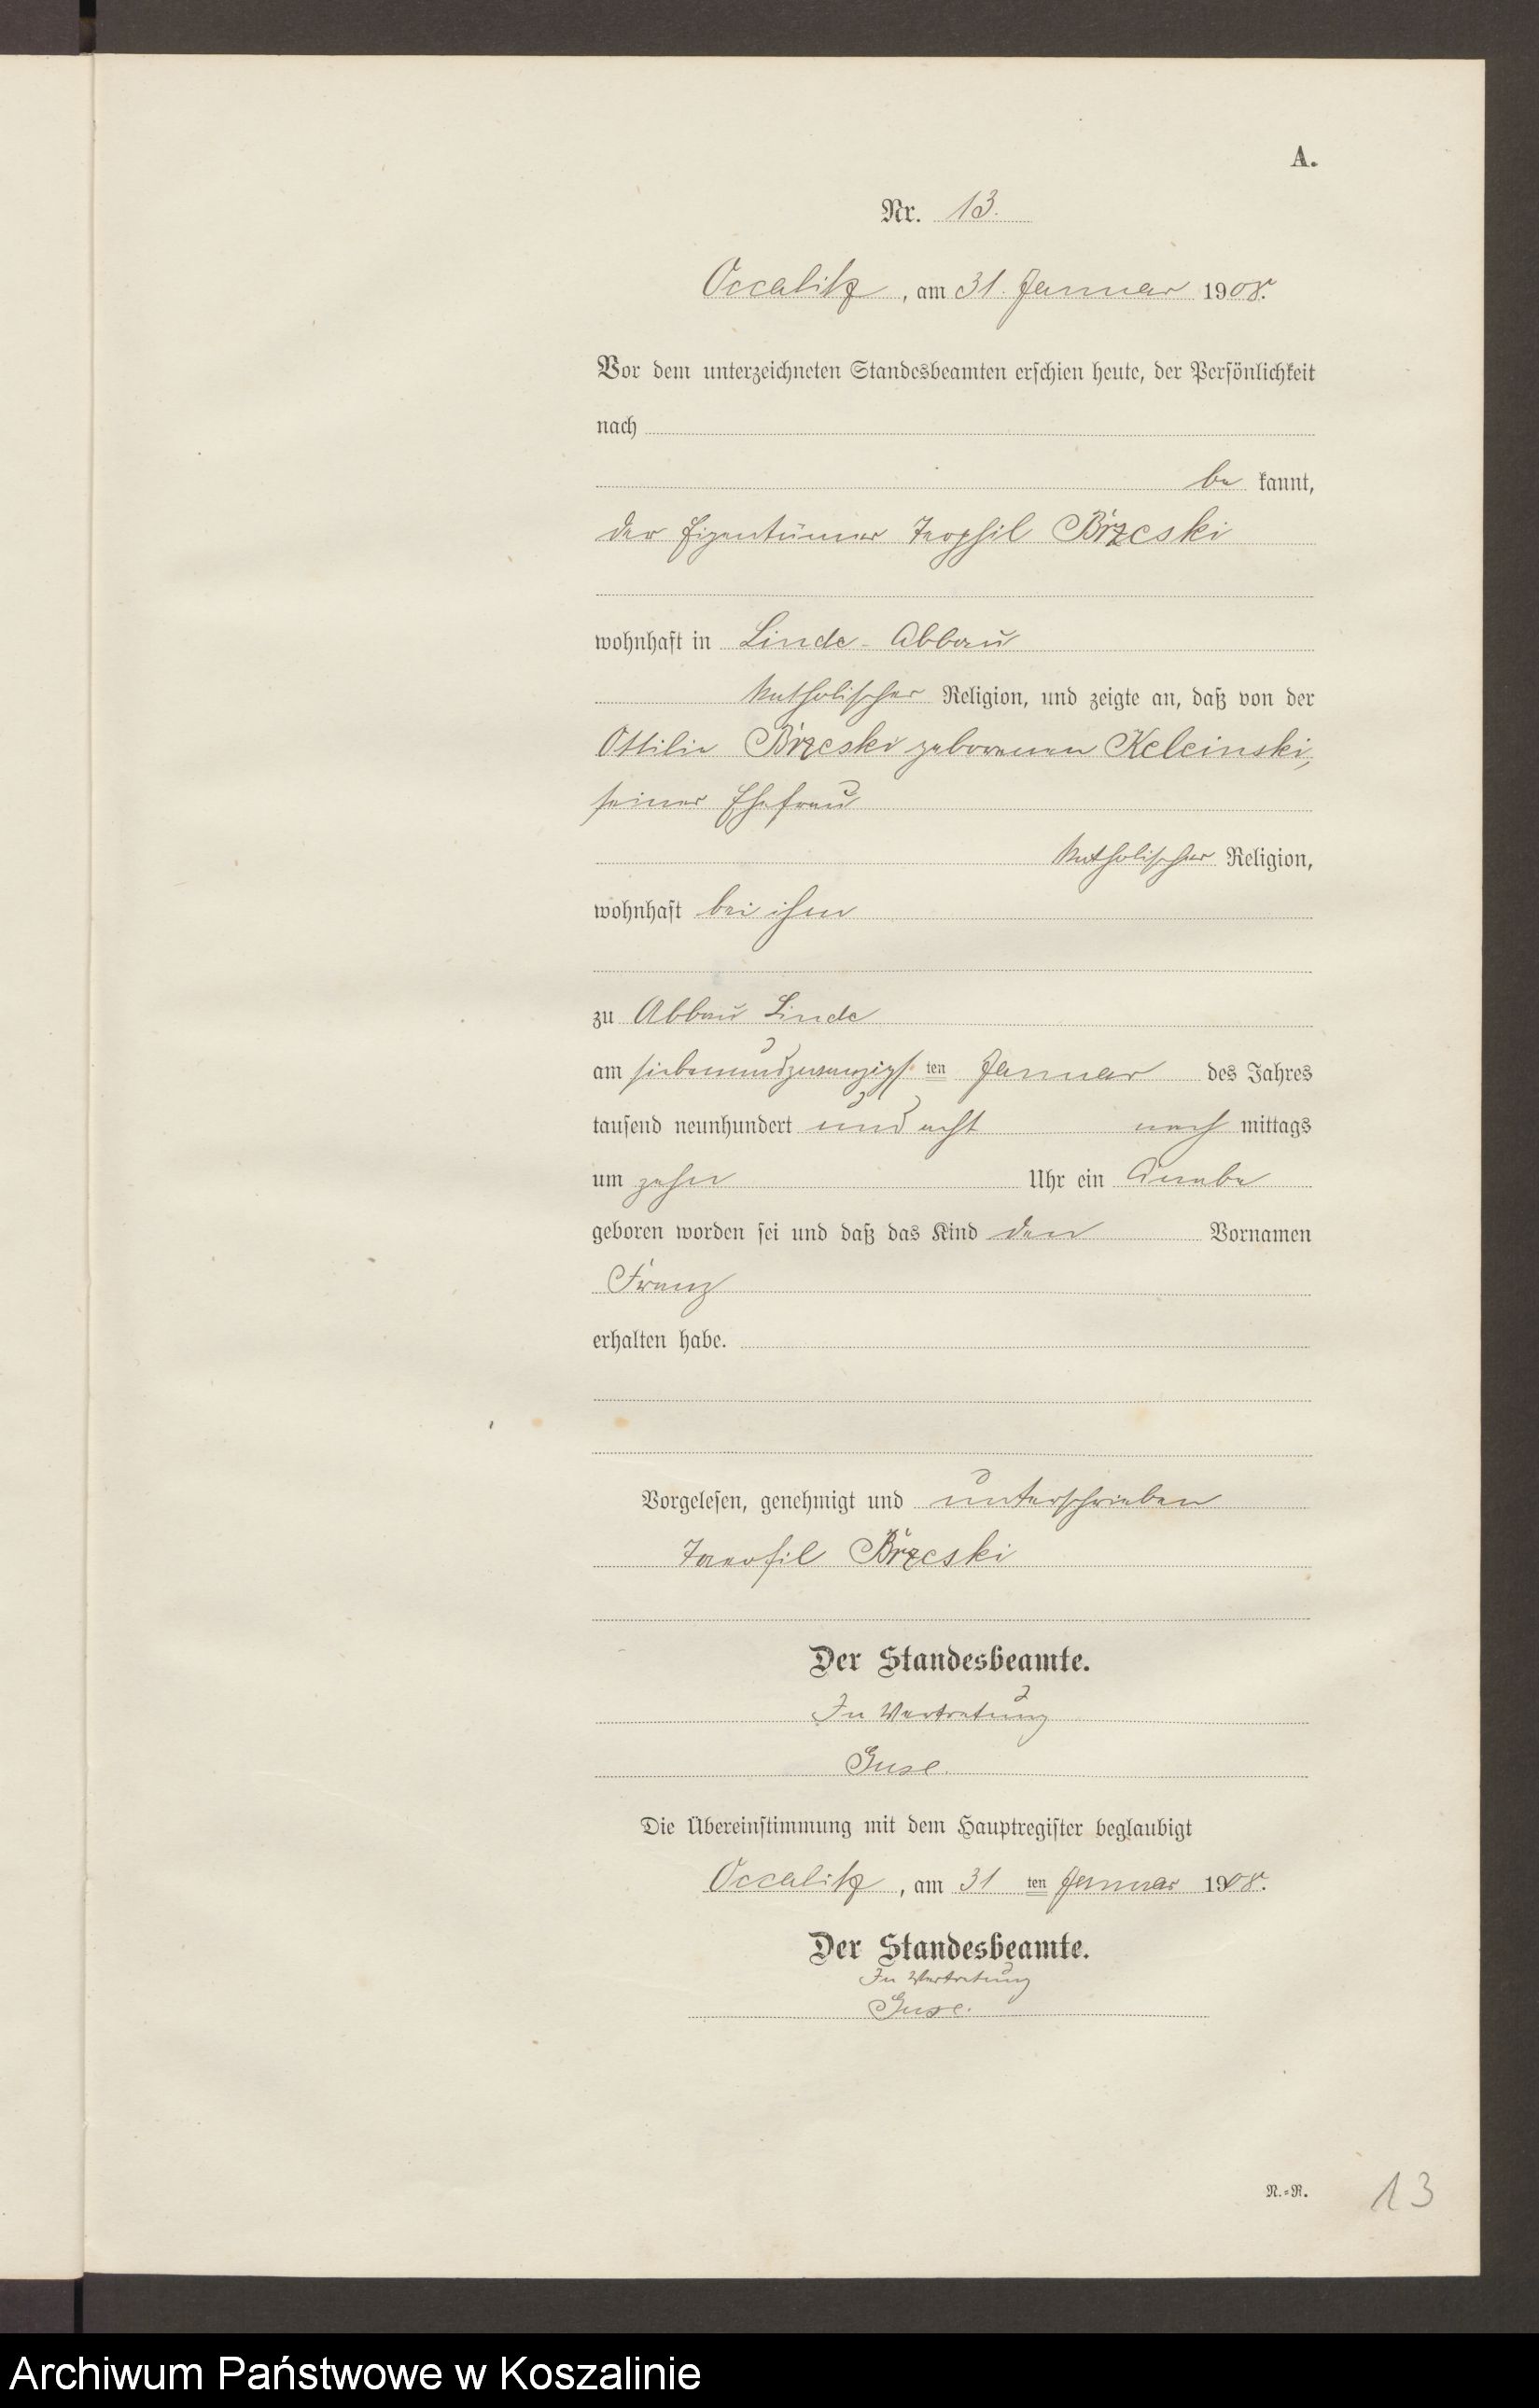 A.
Nr. 13.
Occalitz, am 31. Januar 1908.
Vor dem unterzeichneten Standesbeamten erschien heute, der Persönlichkeit
nach
be kannt,
der Eigentümer Teophil Brzeski
wohnhaft in Linde-Abbau
katholischer Religion, und zeigte an, daß von der
Ottilie Brzeski geborenen Keleinski,
seiner Ehefrau
katholischer Religion,
wohnhaft bei ihm
zu Abbau Linde
am siebenundzwanzigsten Januar des Jahres
tausend neunhundert und acht nach mittags
um zehn Uhr ein Knabe
geboren worden sei und daß das Kind den Vornamen
Franz
erhalten habe.
Vorgelesen, genehmigt und unterschrieben
Brzeski
Der Standesbeamte.
In Vertretung
Guse.
Die Übereinstimmung mit dem Hauptregister beglaubigt
Occalitz, am 31 ten Januar 1908.
Der Standesbeamte.
In Vertretung
Guse.
N.=R. 13
Archiwum Państwowe w Koszalinie